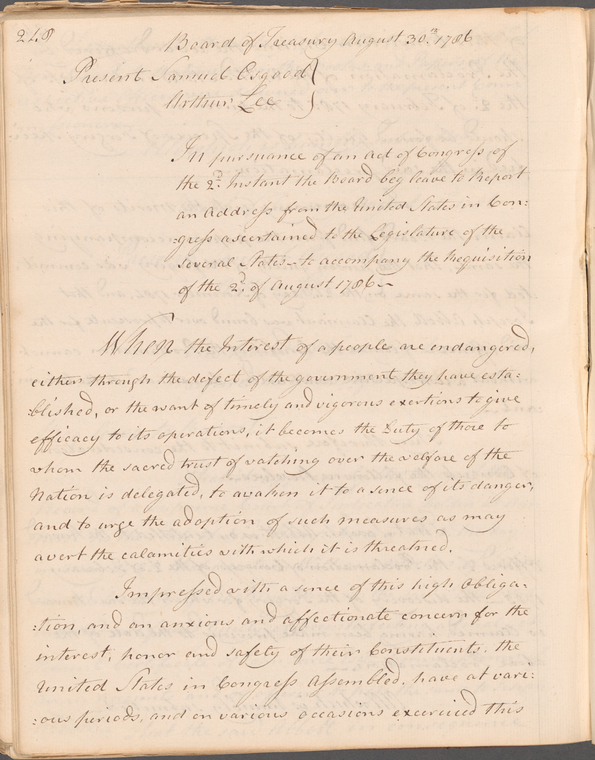 248
Board of Treasury August 30.th 1786
Present Samuel Osgood }
Arthur Lee }
In pursuance of an act of Congress of
the 2.d Instant the Board beg leave to Report
an Address from the United States in Con:
:gress ascertained to the Legislature of the
several States to accompany the Requisition
of the 2.d of August 1786~
When the Interest of a people are endangered,
either through the defect of the government they have esta:
:blished, or the want of timely and vigorous exertions to give
efficacy to its operations, it becomes the Duty of those to
whom the sacred trust of watching over the welfare of the
Nation is delegated, to awaken it to a sence of its danger,
and to urge the adoption of such measures as may
avert the calamities with which it is threatned.
Impressed with a sence of this high Obliga:
:tion, and an anxious and affectionate concern for the
interest, honor and safety of their Constituents, the
United States in Congress Assembled, have at vari:
:ous periods, and on various occasions excercised this